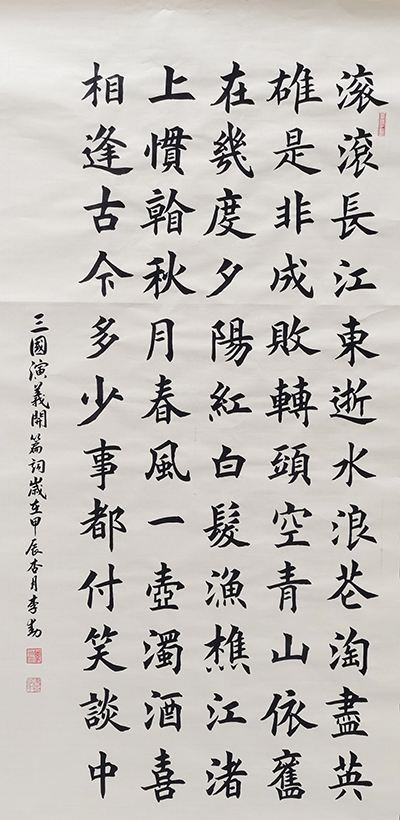 滚滚長江東逝水浪花淘盡英
雄是非成敗轉頭空青山依舊
在幾度夕陽紅白髮漁樵江渚
上慣看秋月春風一壺濁酒喜
相逢古今多少事都付笑談中
三國演義開篇詞歲在甲辰杏月李